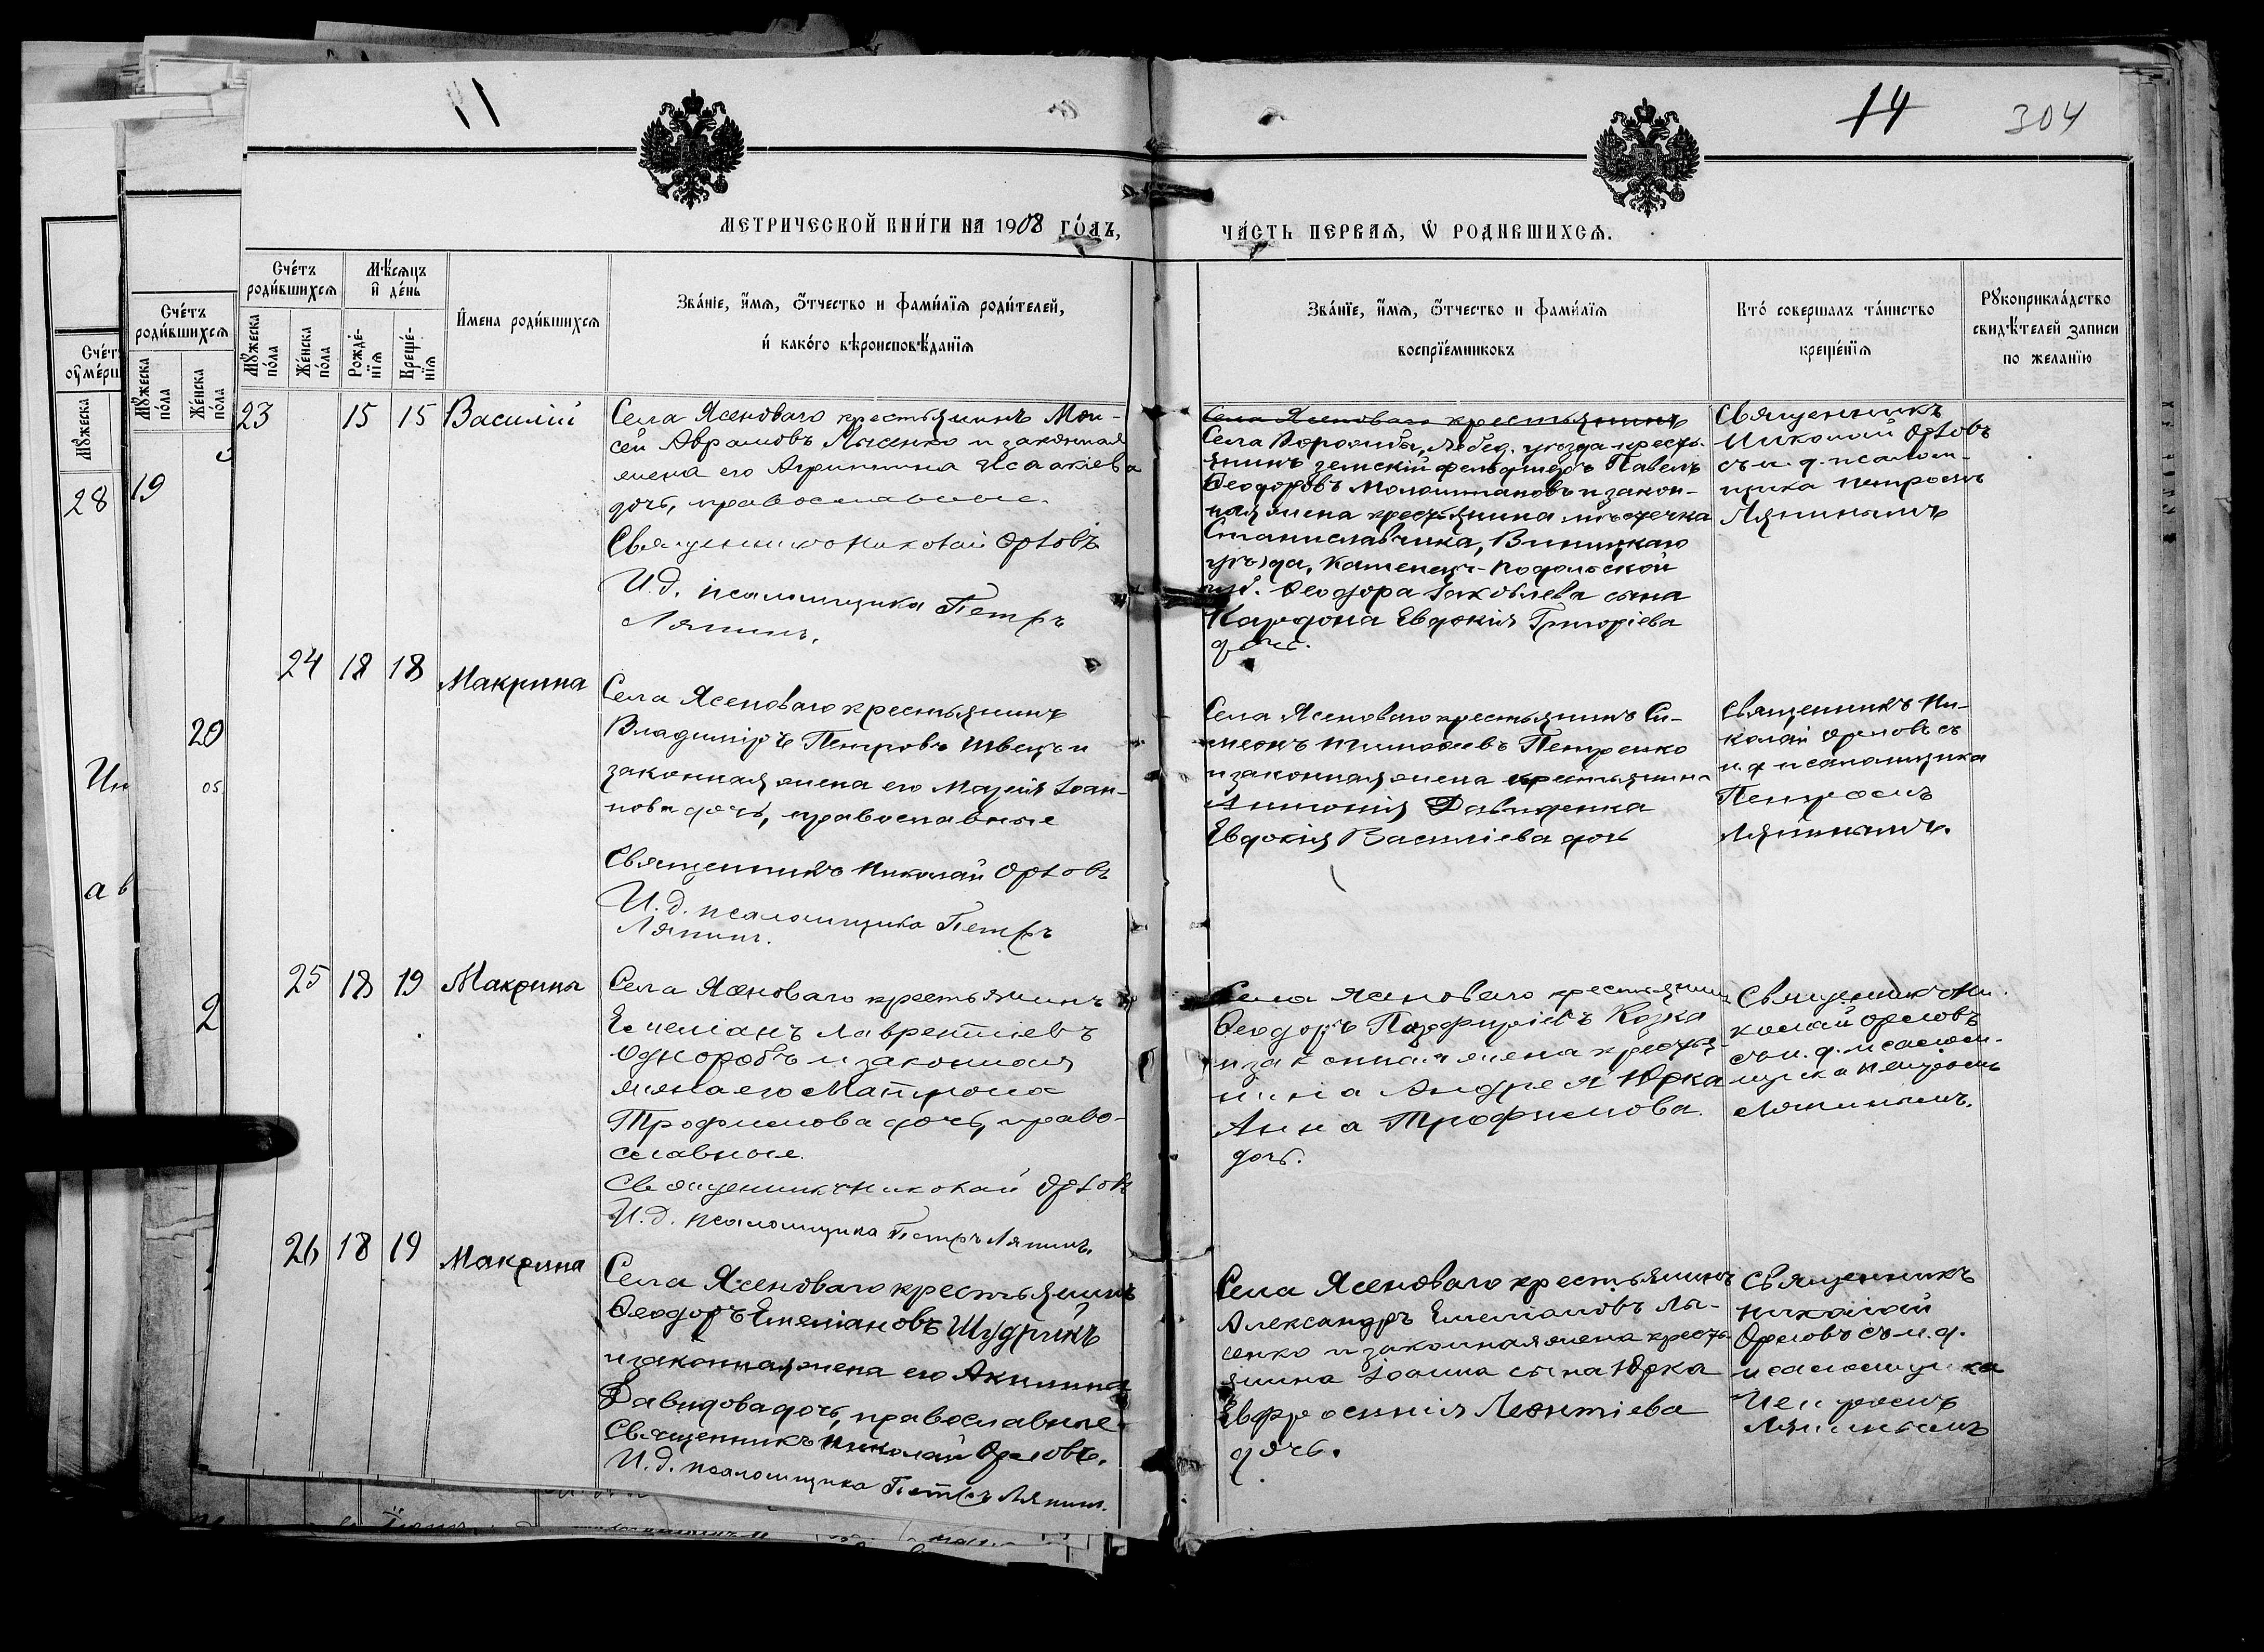 14
304
МЕТРИЧЕСКОЙ КНИ́ГИ НА 1908 ГО́ДЪ,
ЧА́СТЬ ПЕРВАЯ, Ѡ РОДИВШИХСЯ.
Сче́тъ роди́вшихся
Мѣ́сяцъ и҆ де́нь
И҆мена роди́вшихся
Зва́ніе, и҆́мя, ѻ҆́тчество и фами́лїя роди́телей,
и҆ како́го вѣроисповѣ́данїя
Мꙋ́жеска по́ла
Же́нска по́ла
Рожде́нїя
Креще́нїя
Зва́нїе, и҆́мя, ѻ҆́тчество и фами́лїя
воспрїе́мниковъ
Кто́ совершалъ та́инство
креще́нїя
Рꙋкоприкла́дство
свидѣ́телей записи
по желанїю
Сче́тъ
роди́вшихся
Мꙋ́жеска по́ла
Же́нска по́ла
28
19
20
2
23 15 15 Василій
Села Ясеноваго крестьянинъ Мои-
сей Аврамовъ Лысенко и законная
жена его Агриппина Исаакіева
дочь, православные.
Священникъ Николай Орловъ
И.д. псаломщика Петръ
Ляпинъ.
Села Ясеноваго крестьянинъ
Села Ворожбы, Лебед. уѣзда кресть-
янинъ земскій фельдшеръ Павелъ
Ѳеодоровъ и закон-
ная жена крестьянина мѣстечка
Станиславчика, Винницкаго
уѣзда, Каменецъ-Подольской
губ. Ѳеодора Іаковлева сына
Евдокія Григоріева
дочь.
Священникъ
Николай Орловъ
съ и.д. псалом-
щика Петромъ
Ляпинымъ
24 18 18 Макрина
Села Ясеноваго крестьянинъ
Владиміръ Петровъ Швецъ и
законная жена его Марія Іоан-
нова дочь, православные
Священникъ Николай Орловъ
И.д. псаломщика Петръ
Ляпинъ.
Села Ясеноваго крестьянинъ Си-
меонъ Тимоѳеевъ Петренко
и законная жена крестьянина
Антонія Давиденка
Евдокія Василіева дочь
Священникъ Ни-
колай Орловъ съ
и.д псаломщика
Петромъ
Ляпинымъ.
25 18 19 Макрина
Села Ясеноваго крестьянинъ
Емеліанъ Лаврентіевъ
Одноробъ и законная
жена его Матрона
Трофимова дочь, право-
славные.
Священникъ Николай Орловъ
И.д. псаломщика Петръ Ляпинъ.
Села Ясеноваго крестьянинъ
Ѳеодоръ Порфиріевъ Козка
и законная жена крестья-
нина Андрея Юрка
Анна Трофимова
дочь.
Священникъ Ни-
колай Орловъ
съ и.д. псалом-
щика Петромъ
Ляпинымъ.
26 18 19 Макрина
Села Ясеноваго крестьянинъ
Ѳеодоръ Емеліановъ Шудрикъ
и законная жена его Акилина
Давидова дочь, православные
Священникъ Николай Орловъ.
И.д. псаломщика Петръ Ляпинъ.
Села Ясеноваго крестьянинъ
Александръ Емеліановъ Лы-
сенко и законная жена кресть-
янина Іоанна сына Юрка
Евфросинія Леонтіева
дочь.
Священникъ
Николай
Орловъ съ и.д.
псаломщика
Петромъ
Ляпинымъ